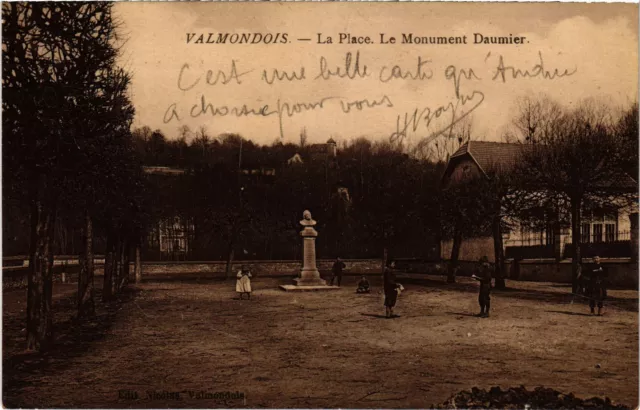 VALMONDOIS. — La Place. Le Monument Daumier.
C'est une belle carte qu'André
a choisie pour vous
Edit. Nicolas, Valmondois